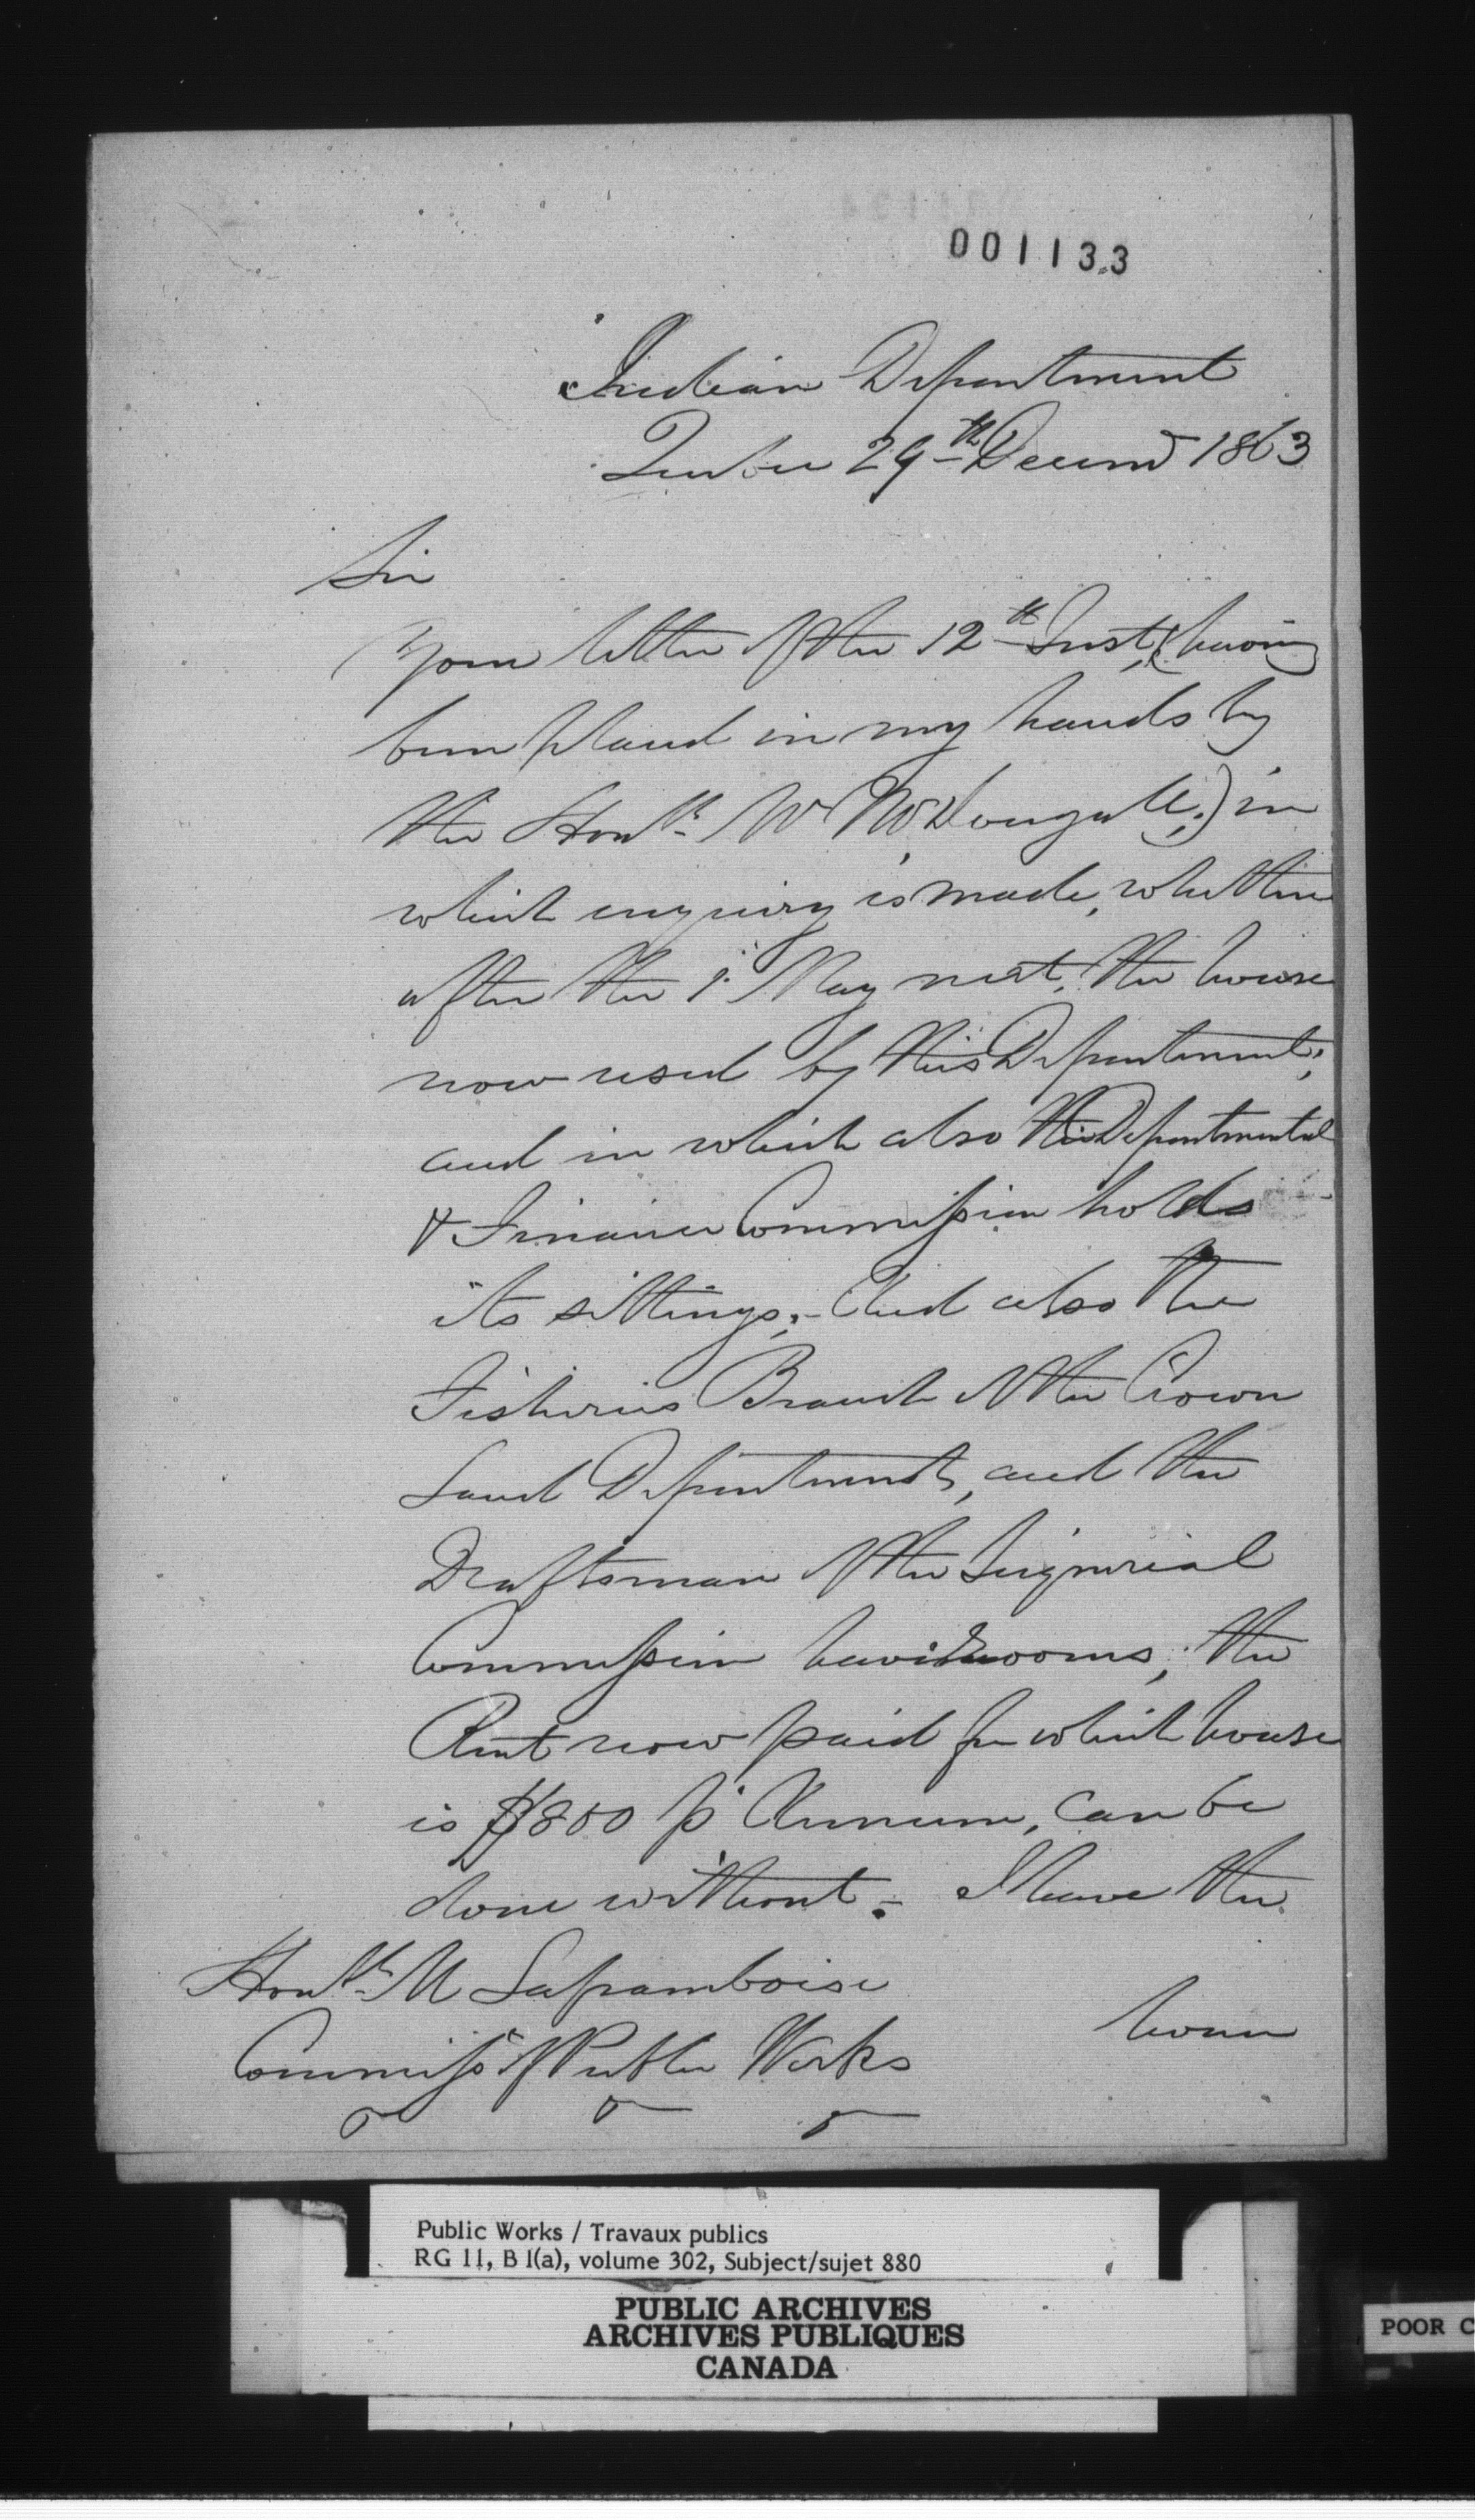 001133
Indian Department
Quebec 29th Decemr 1863
Sir
Your letter of the 12th Inst, (having
been placed in my hands by
the Honble Wm McDougall,) in
which enquiry is made, whether
after the 1st May next, the house
now used by this Department;
and in which also the Departmental
& Finance Commission holds
its sittings; - And also the
Fisheries Branch of the Crown
Land Department, and the
Draftsman of the Seignorial
Commission have rooms; the
Rent now paid for which house
is $800 pr Annum, can be
done without. - I have the
Honble M Laframboise
honor
Commissr of Public Works
Public Works / Travaux publics
RG 11, B 1(a), volume 302, Subject/sujet 880
PUBLIC ARCHIVES
ARCHIVES PUBLIQUES
CANADA
POOR C